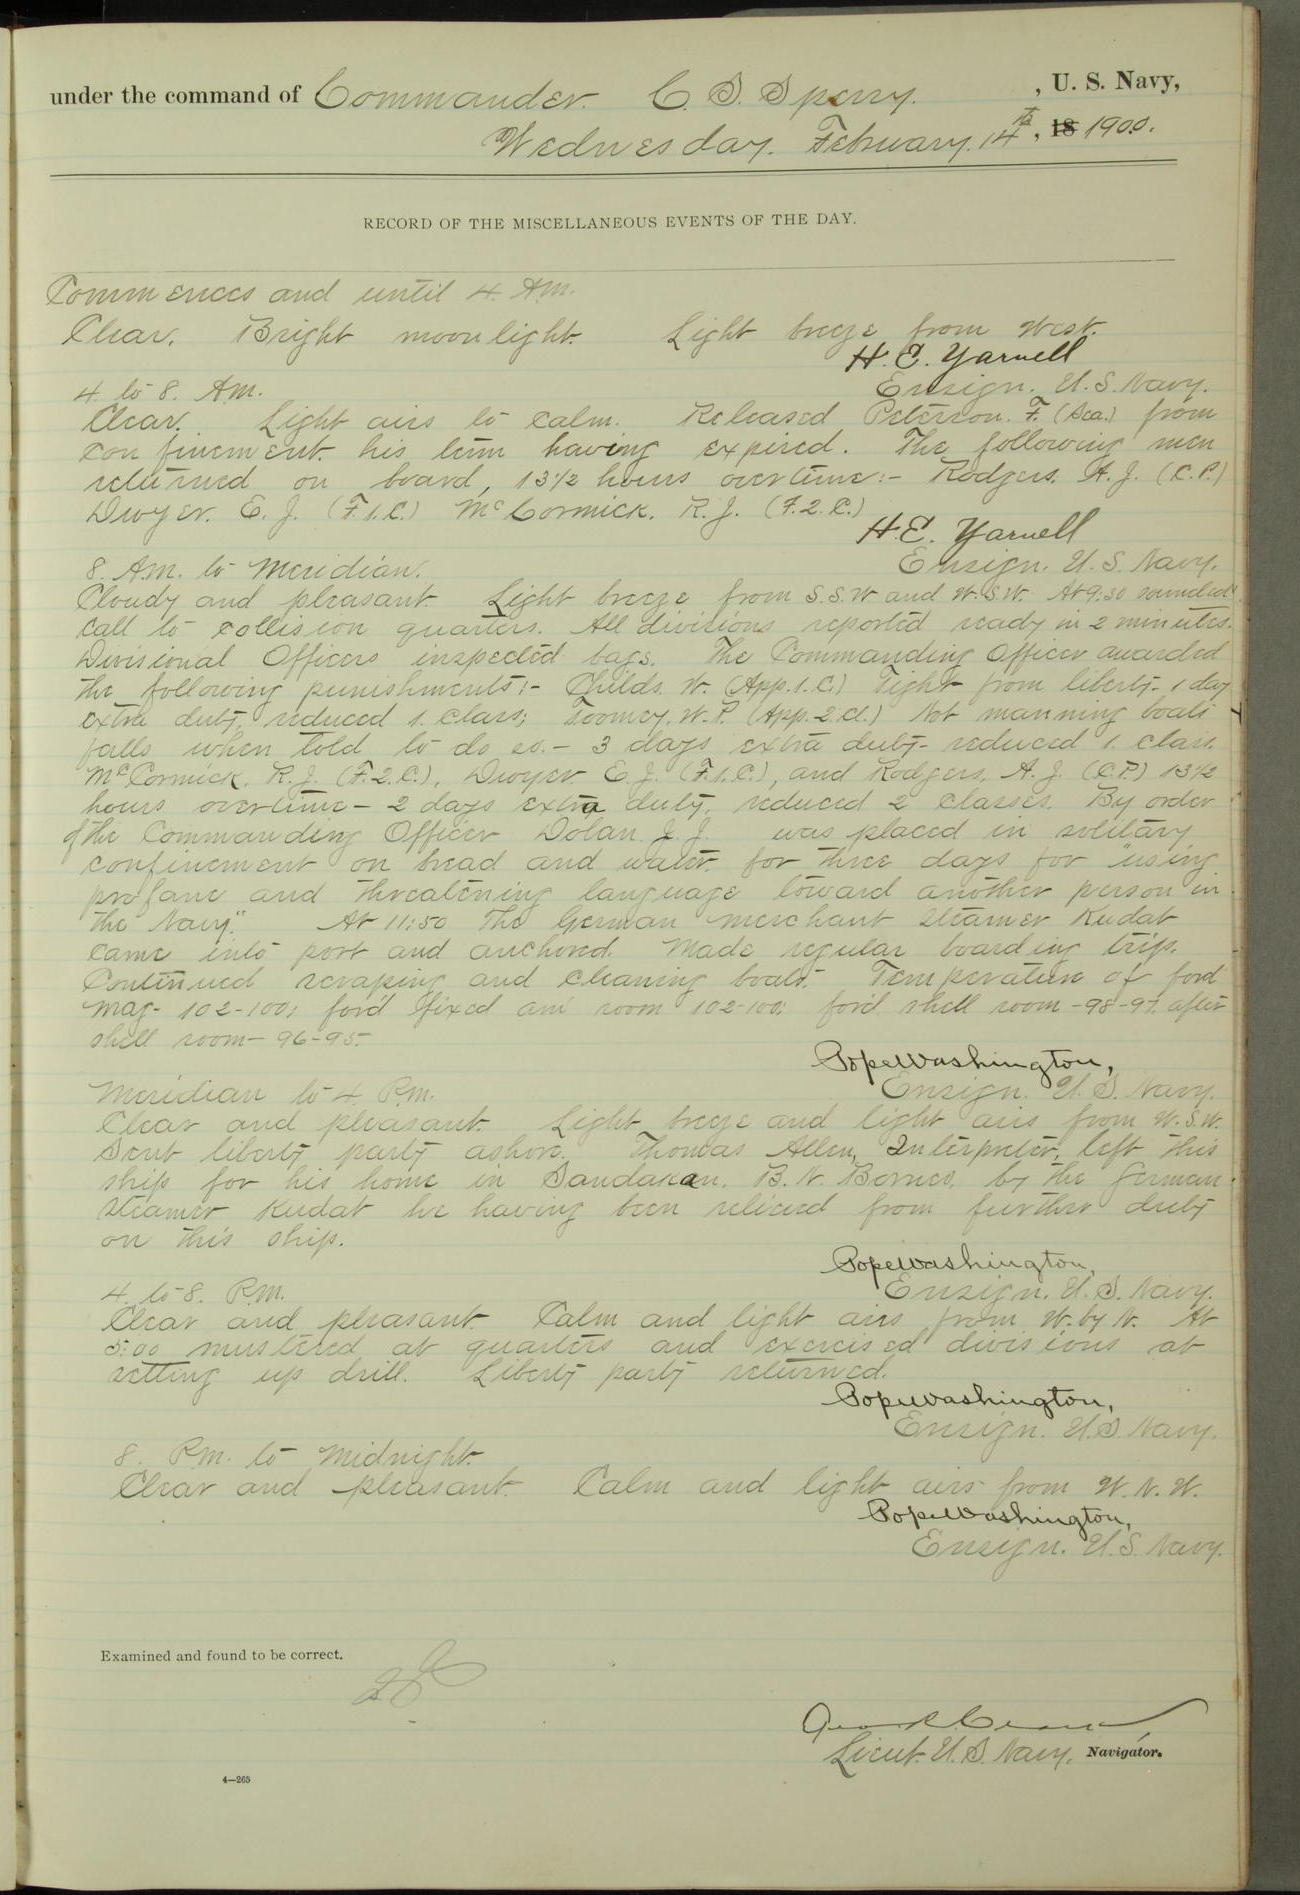 under the command of Commander. C. S. Sperry. , U. S. Navy,
Wednesday. February. 14th , 18 1900.
RECORD OF THE MISCELLANEOUS EVENTS OF THE DAY.
Commences and until 4. A.M.
Clear. Bright moonlight. Light breeze from West.
H. E. Yarnell
Ensign. U. S. Navy.
4 to 8. A.M.
Clear. Light airs to calm. Released Peterson. F. (Sea.) from
confinement. his term having expired. The following men
returned on board, 13 1/2 hours overtime:- Rodgers. A. J. (C.P.)
Dwyer. E. J. (F.1.C.) McCormick. R. J. (F.2.C.)
H. E. Yarnell
Ensign. U. S. Navy.
8. A.M. to Meridian.
Cloudy and pleasant. Light breeze from S.S.W and W.S.W. At 9:30 sounded
call to collision quarters. All divisions reported ready in 2 minutes.
Divisional Officers inspected bags. The Commanding Officer awarded
the following punishments:- Childs. W. (App.1.C.) Tight from liberty - 1 day
extra duty, reduced 1. class; Toomey. W. P. (App.2.cl.) Not manning boats
falls when told to do so. - 3 days extra duty - reduced 1. class.
McCormick. R. J. (F.2.C.), Dwyer E. J. (F.1.C.), and Rodgers. A. J. (C.P.) 13 1/2
hours overtime - 2 days extra duty, reduced 2 classes. By order
of the Commanding Officer Dolan J. J. was placed in solitary
confinement on bread and water. for three days for "using
profane and threatening language toward another person in
the Navy." At 11:50 The German merchant steamer Kudat
came into port and anchored. Made regular boarding trip.
Continued scraping and cleaning boats. Temperature of ford
mag- 102-100; for'd fixed am room 102-100; for'd shell room -98-97. after
shell room - 96-95.
Pope Washington,
Ensign. U. S. Navy.
Meridian to 4. P.M.
Clear and pleasant. Light breeze and light airs from W.S.W.
Sent liberty party ashore. Thomas Allen, Interpreter, left this
ship for his home in Sandakan. B. N. Borneo. by the German
steamer Kudat he having been relieved from further duty
on this ship.
Pope Washington,
Ensign. U. S. Navy.
4. to 8. P.M.
Clear and pleasant. Calm and light airs from W. by N. At
5:00 mustered at quarters and exercised divisions at
setting up drill. Liberty party returned.
Pope Washington,
Ensign. U. S. Navy.
8. P.M. to Midnight.
Clear and pleasant. Calm and light airs from W. N. W.
Pope Washington,
Ensign. U. S. Navy.
Examined and found to be correct.
Lieut. U. S. Navy, Navigator.
4—265